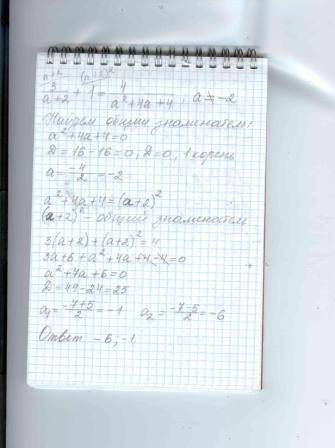 a+2 (a+2)²
3/(a+2) + 1 = 4/(a²+4a+4), a ≠ -2
Найдем общий знаменатель:
a²+4a+4=0
D=16-16=0; D=0, 1 корень
a=-4/2=-2
a²+4a+4=(a+2)²
(a+2)² - общий знаменатель
3(a+2)+(a+2)²=4
3a+6+a²+4a+4-4=0
a²+7a+6=0
D=49-24=25
a₁=(-7+5)/2=-1 a₂=(-7-5)/2=-6
Ответ: -6; -1.